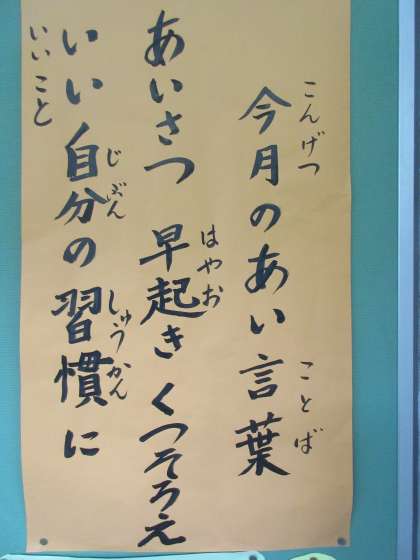 今月のあい言葉
こんげつ
ことば
あいさつ 早起き くつそろえ
はやお
いい自分の習慣に
じぶん
しゅうかん
いいこと